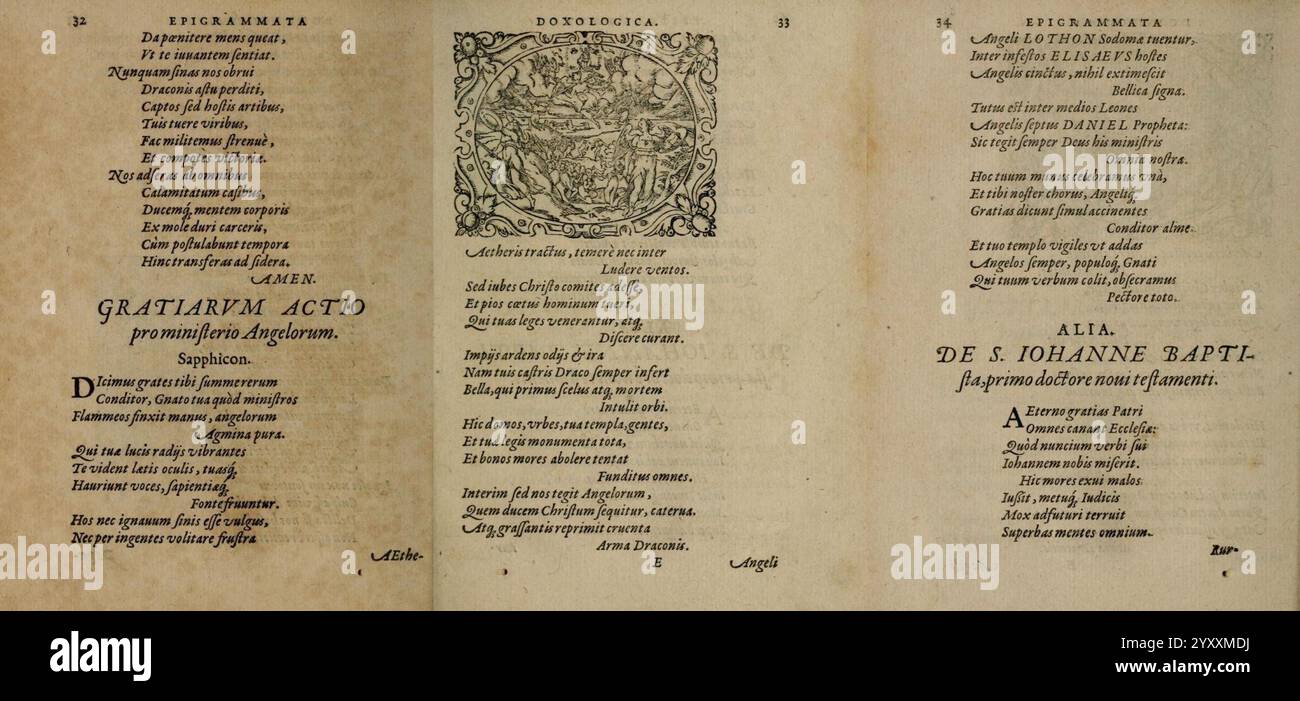 32 EPIGRAMMATA
Da pœnitere mens queat,
Vt te iuuantem ſentiat.
Nunquam ſinas nos obrui
Draconis aſtu perditi,
Captos ſed hoſtis artibus,
Tuis tuere viribus,
Fac militemus ſtrenuè,
Et compotes victoriæ.
Nos adſeras ab omnibus
Calamitatum caſibus,
Ducemq́; mentem corporis
Ex mole duri carceris,
Cùm poſtulabunt tempora
Hinc transferas ad ſidera.
AMEN.
GRATIARVM ACTIO
pro miniſterio Angelorum.
Sapphicon.
DIcimus grates tibi ſumme rerum
Conditor, Gnato tua quòd miniſtros
Flammeos finxit manus, angelorum
Agmina pura.
Qui tuæ lucis radijs vibrantes
Te vident lætis oculis, tuasq́;
Hauriunt voces, ſapientiæq́;
Fonte fruuntur.
Hos nec ignauum ſinis eſſe vulgus,
Nec per ingentes volitare fruſtra
AEthe-
DOXOLOGICA. 33
Aetheris tractus, temerè nec inter
Ludere ventos.
Sed iubes Chriſto comites adeſſe,
Et pios cœtus hominum tueri,
Qui tuas leges venerantur, atq́;
Diſcere curant.
Impijs ardens odijs & ira
Nam tuis caſtris Draco ſemper infert
Bella, qui primus ſcelus atq́; mortem
Intulit orbi.
Hic domos, vrbes, tua templa, gentes,
Et tuæ legis monumenta tota,
Et bonos mores abolere tentat
Funditus omnes.
Interim ſed nos tegit Angelorum,
Quem ducem Chriſtum ſequitur, caterua.
Atq́; graſſantis reprimit cruenta
Arma Draconis.
E Angeli
34 EPIGRAMMATA
Angeli LOTHON Sodomæ tuentur,
Inter infeſtos ELISAEVS hoſtes
Angelis cinctus, nihil extimeſcit
Bellica ſigna.
Tutus eſt inter medios Leones
Angelis ſeptus DANIEL Propheta:
Sic tegit ſemper Deus his miniſtris
Omnia noſtra.
Hoc tuum munus celebramus vnà,
Et tibi noſter chorus, Angeliq́;
Gratias dicunt ſimul accinentes
Conditor alme.
Et tuo templo vigiles vt addas
Angelos ſemper, populoq́; Gnati
Qui tuum verbum colit, obſecramus
Pectore toto.
ALIA.
DE S. IOHANNE BAPTI-
ſta, primo doctore noui teſtamenti.
AEterno gratias Patri
Omnes canant Eccleſiæ:
Quòd nuncium verbi ſui
Iohannem nobis miſerit.
Hic mores exui malos
Iuſſit, metuq́; Iudicis
Mox adfuturi terruit
Superbas mentes omnium.
Rur-
alamy
Image ID: 2YXXMDJ
www.alamy.com